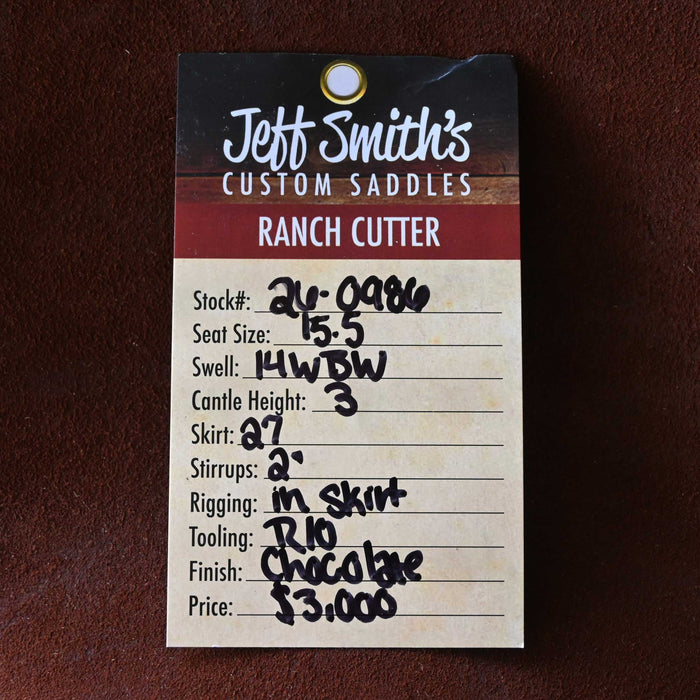 Jeff Smith's
CUSTOM SADDLES
RANCH CUTTER
Stock#: 26-0986
Seat Size: 15.5
Swell: 14WBW
Cantle Height: 3
Skirt: 27
Stirrups: 2"
Rigging: in skirt
Tooling: R10
Finish: Chocolate
Price: $3,000